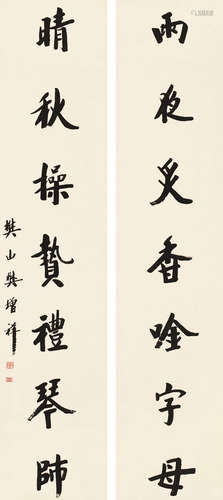 雨夜炙香唫字母
晴秋操贄禮琴師
樊山樊增祥